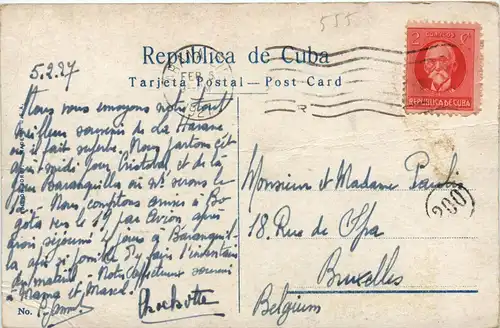 555
Republica de Cuba
Tarjeta Postal — Post Card
2 CORREOS 2
Cs
REPUBLICA DE CUBA
HABANA
FEB 5
5.2.27
Nous vous envoyons notre tout
meilleur souvenir de La Havane
où il fait superbe. Nous partons cet
après midi pour Cristobal et de là
pour Baranquilla où ns. serons le
Nous comptons arriver à Bo
gota vers le 19 par avion après
avoir séjourné jours à Baranquil-
la afin si possible d'y faire l'inventaire
du matériel. Notre affectueux souvenir
à Mama et Marcel.
Monsieur et Madame
18 Rue de Spa
Bruxelles
Belgium
(200)
No.